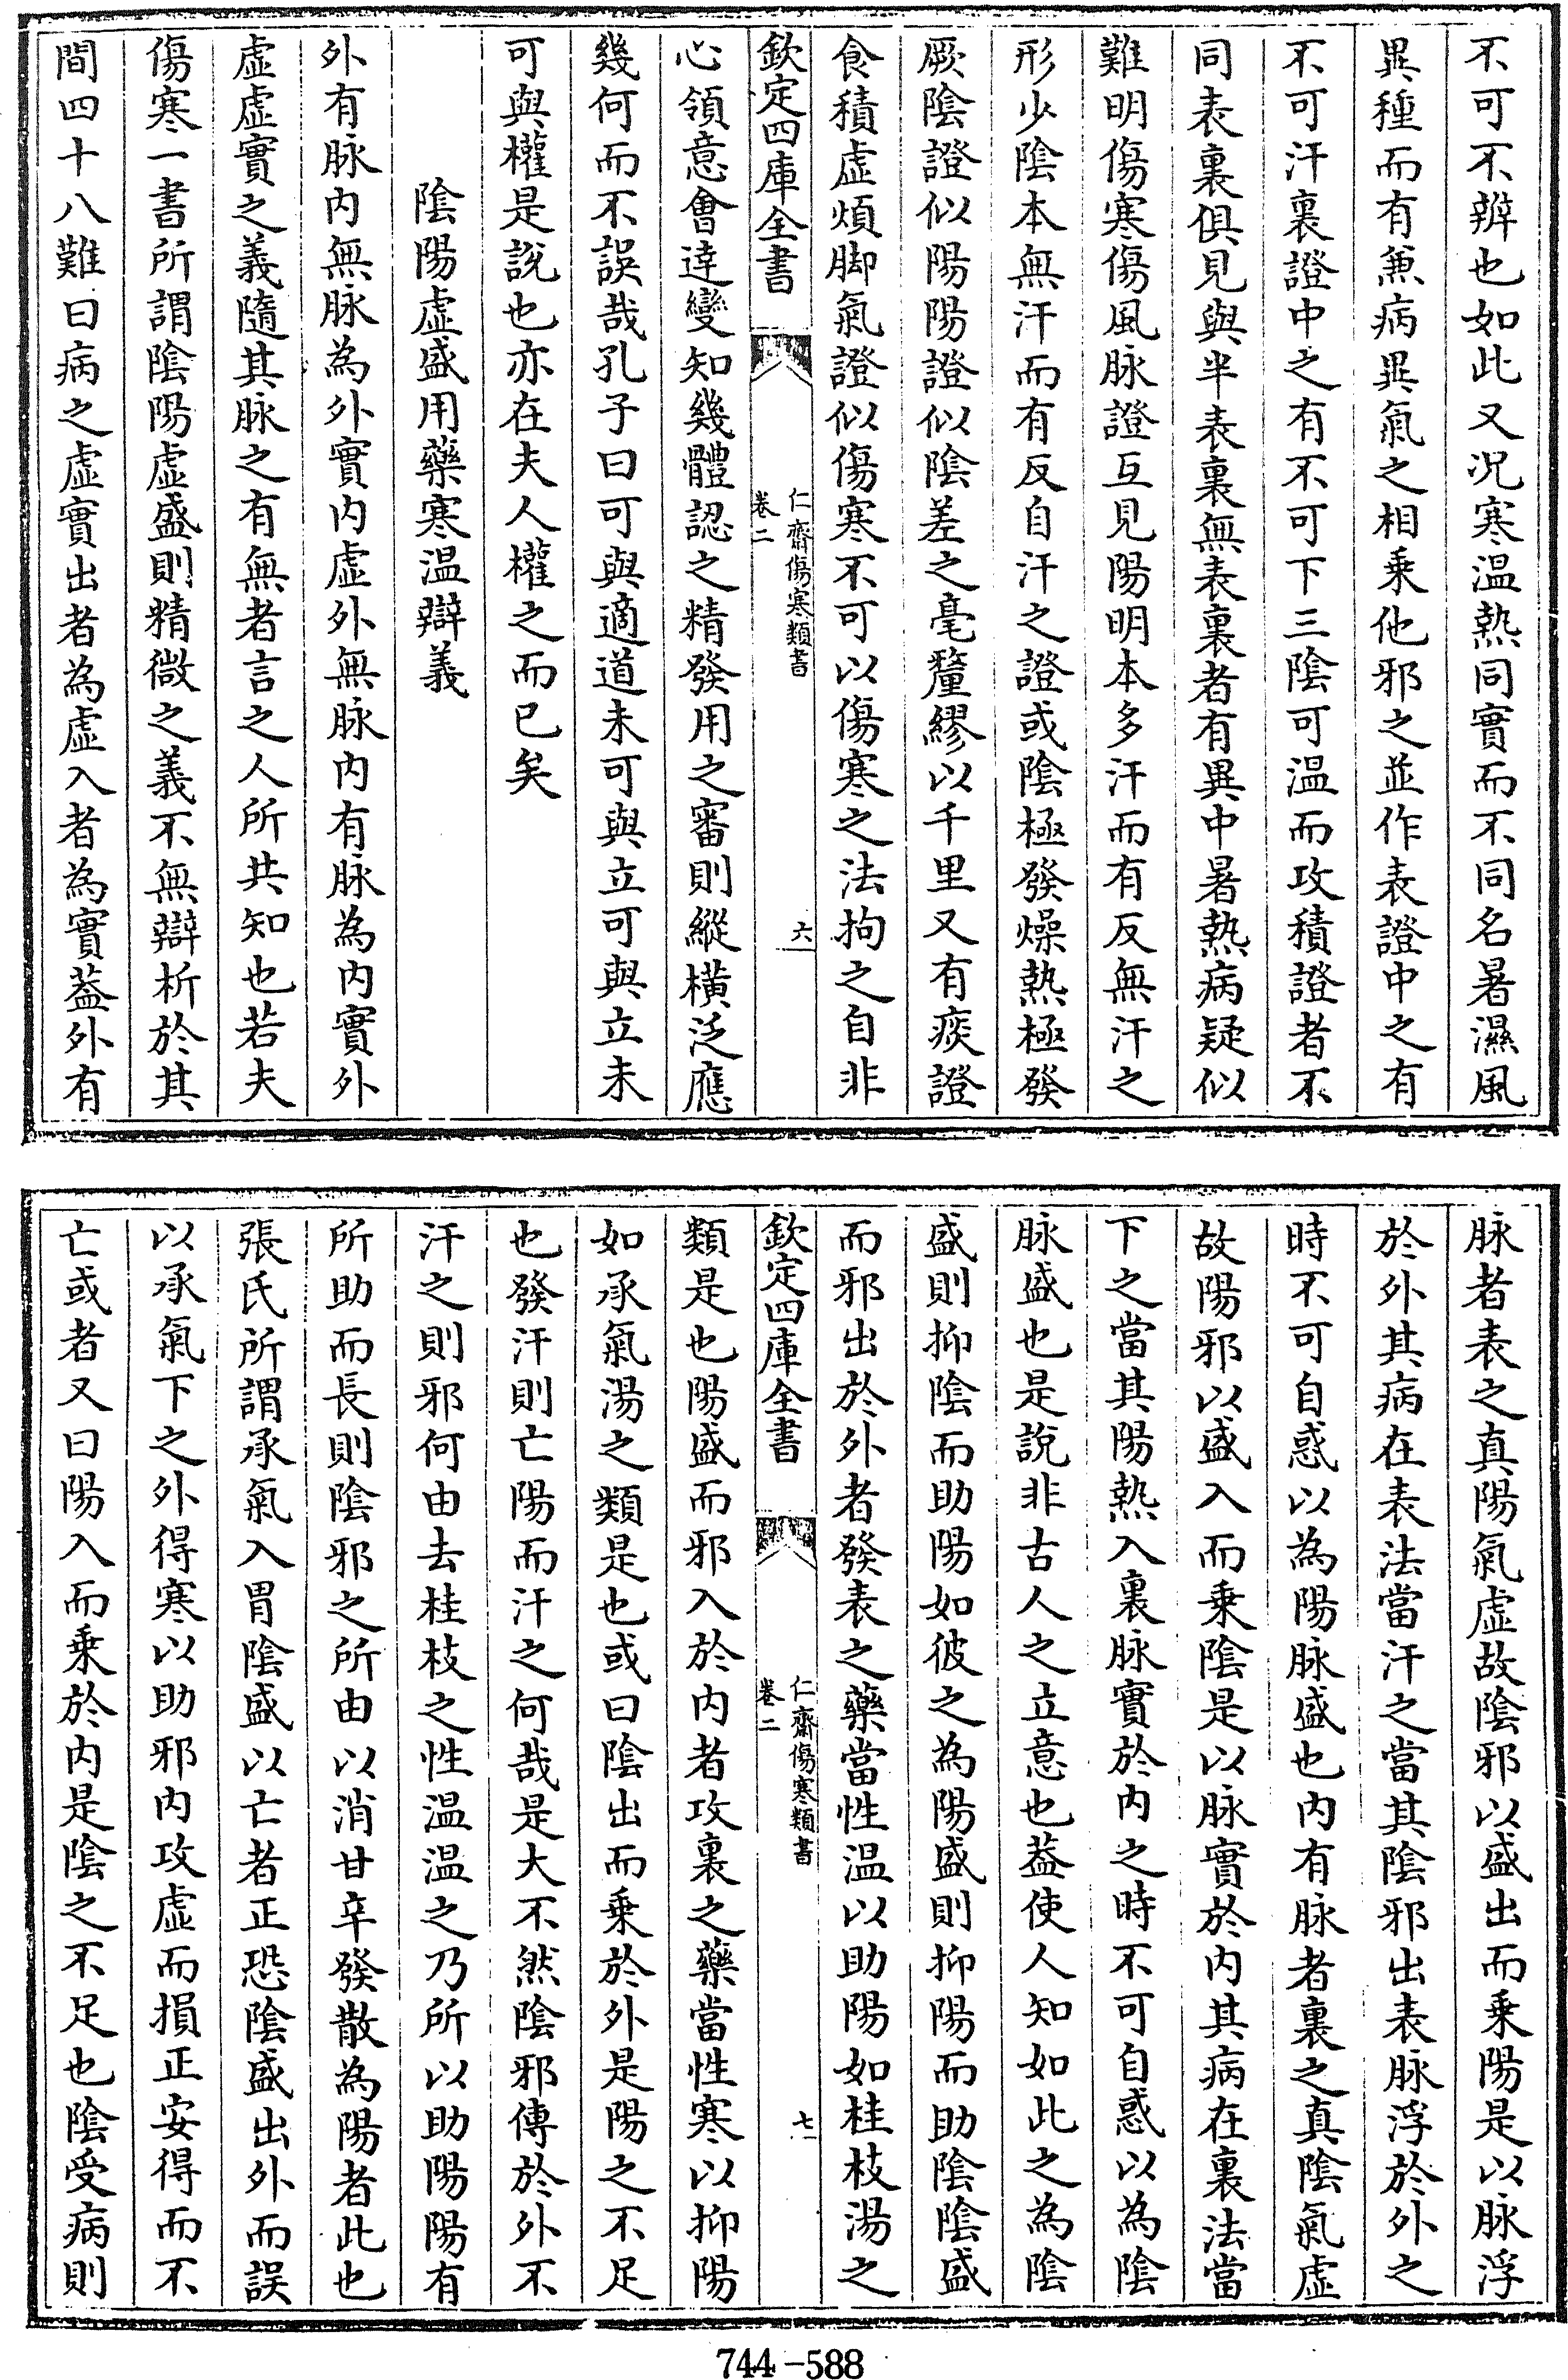 不可不辨也如此又况寒温熱同實而不同名暑濕風
異種而有兼病異氣之相乗他邪之並作表證中之有
不可汗裏證中之有不可下三陰可温而攻積證者不
同表裏俱見與半表裏無表裏者有異中暑熱病疑似
難明傷寒傷風脉證互見陽明本多汗而有反無汗之
形少陰本無汗而有反自汗之證或陰極發燥熱極發
厥陰證似陽陽證似陰差之毫釐繆以千里又有痰證
食積虚煩脚氣證似傷寒不可以傷寒之法拘之自非
欽定四庫全書
仁齋傷寒類書
卷二
六
心領意會逹變知幾體認之精發用之審則縱横泛應
幾何而不誤哉孔子曰可與適道未可與立可與立未
可與權是説也亦在夫人權之而已矣
陰陽虚盛用藥寒温辯義
外有脉内無脉為外實内虚外無脉内有脉為内實外
虚虚實之義隨其脉之有無者言之人所共知也若夫
傷寒一書所謂陰陽虚盛則精微之義不無辯析於其
間四十八難曰病之虚實出者為虚入者為實蓋外有
脉者表之真陽氣虚故陰邪以盛出而乗陽是以脉浮
於外其病在表法當汗之當其陰邪出表脉浮於外之
時不可自惑以為陽脉盛也内有脉者裏之真陰氣虚
故陽邪以盛入而乗陰是以脉實於内其病在裏法當
下之當其陽熱入裏脉實於内之時不可自惑以為陰
脉盛也是説非古人之立意也蓋使人知如此之為陰
盛則抑陰而助陽如彼之為陽盛則抑陽而助陰陰盛
而邪出於外者發表之藥當性温以助陽如桂枝湯之
欽定四庫全書
仁齋傷寒類書
卷二
七
類是也陽盛而邪入於内者攻裏之藥當性寒以抑陽
如承氣湯之類是也或曰陰出而乗於外是陽之不足
也發汗則亡陽而汗之何哉是大不然陰邪傳於外不
汗之則邪何由去桂枝之性温温之乃所以助陽陽有
所助而長則陰邪之所由以消甘辛發散為陽者此也
張氏所謂承氣入胃陰盛以亡者正恐陰盛出外而誤
以承氣下之外得寒以助邪内攻虚而損正安得而不
亡或者又曰陽入而乗於内是陰之不足也陰受病則
744-588